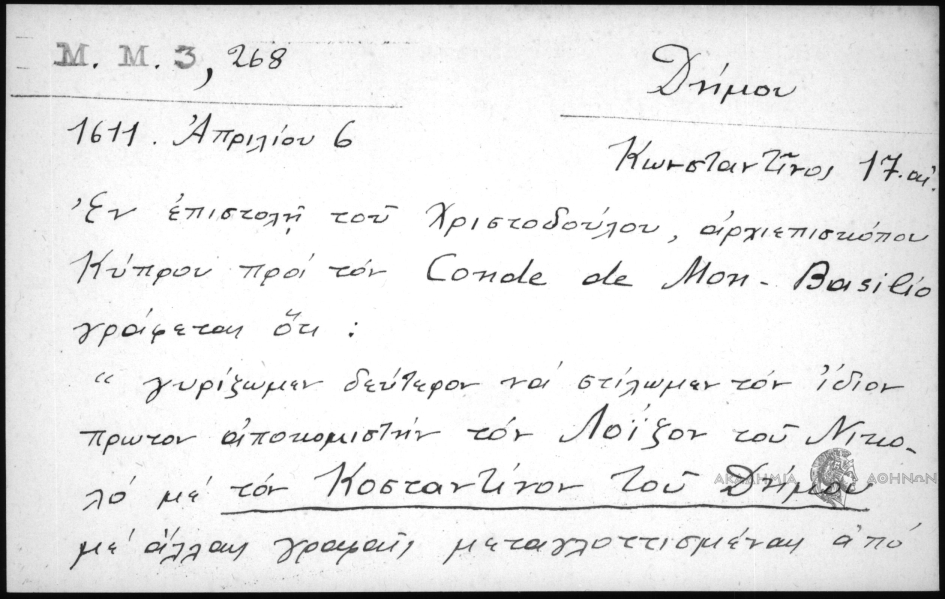 M. M. 3, 268
Δήμου
1611. Ἀπριλίου 6
Κωνσταντῖνος 17. αἰ.
Ἐν ἐπιστολῇ τοῦ Χριστοδούλου, ἀρχιεπισκόπου
Κύπρου πρός τόν Conde de Mon-Basilio
γράφεται ὅτι :
" γυρίζωμεν δεύτερον νά στίλωμεν τόν ἴδιον
πρωτον ἀποκομιστήν τόν Λοΐζον τοῦ Νικο-
λό μέ τόν Κοσταντῖνον τοῦ Δήμου
μέ ἄλλαις γραφαῖς μεταγλοττισμέναις ἀπό
ΑΚΑΔΗΜΙΑ ΑΘΗΝΩΝ